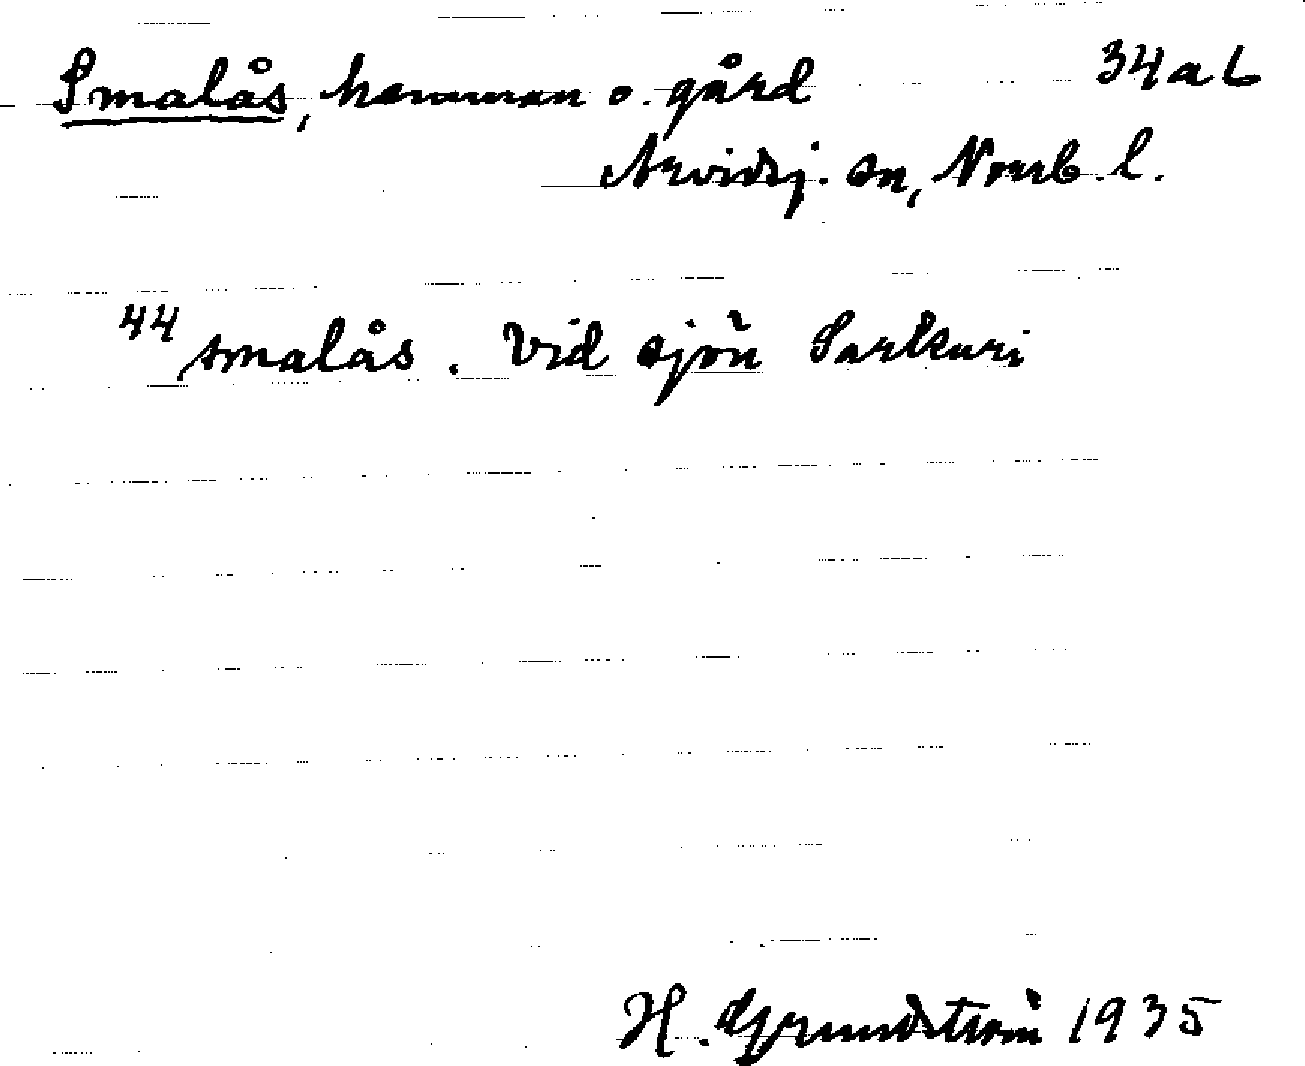 Smalås, hemman o. gård 34 a b
Arvidsj. sn, Norrb. l.
44 smalås. Vid sjön Sarkuri
H. Grundström 1935